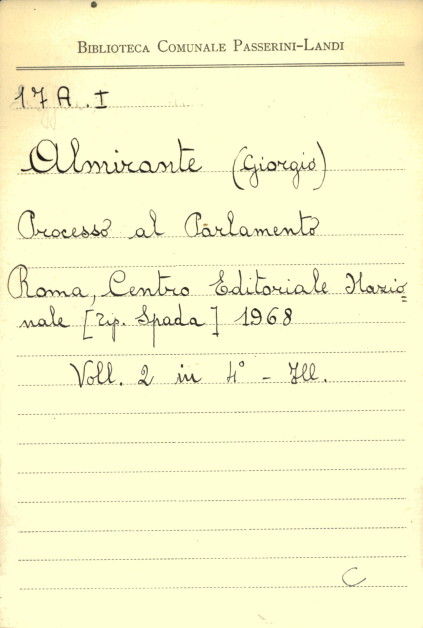 BIBLIOTECA COMUNALE PASSERINI-LANDI
17 A. I
Almirante (Giorgio)
Processo al Parlamento
Roma, Centro Editoriale Nazio=
nale [Tip. Spada] 1968
Voll. 2 in 4° - Ill.
C